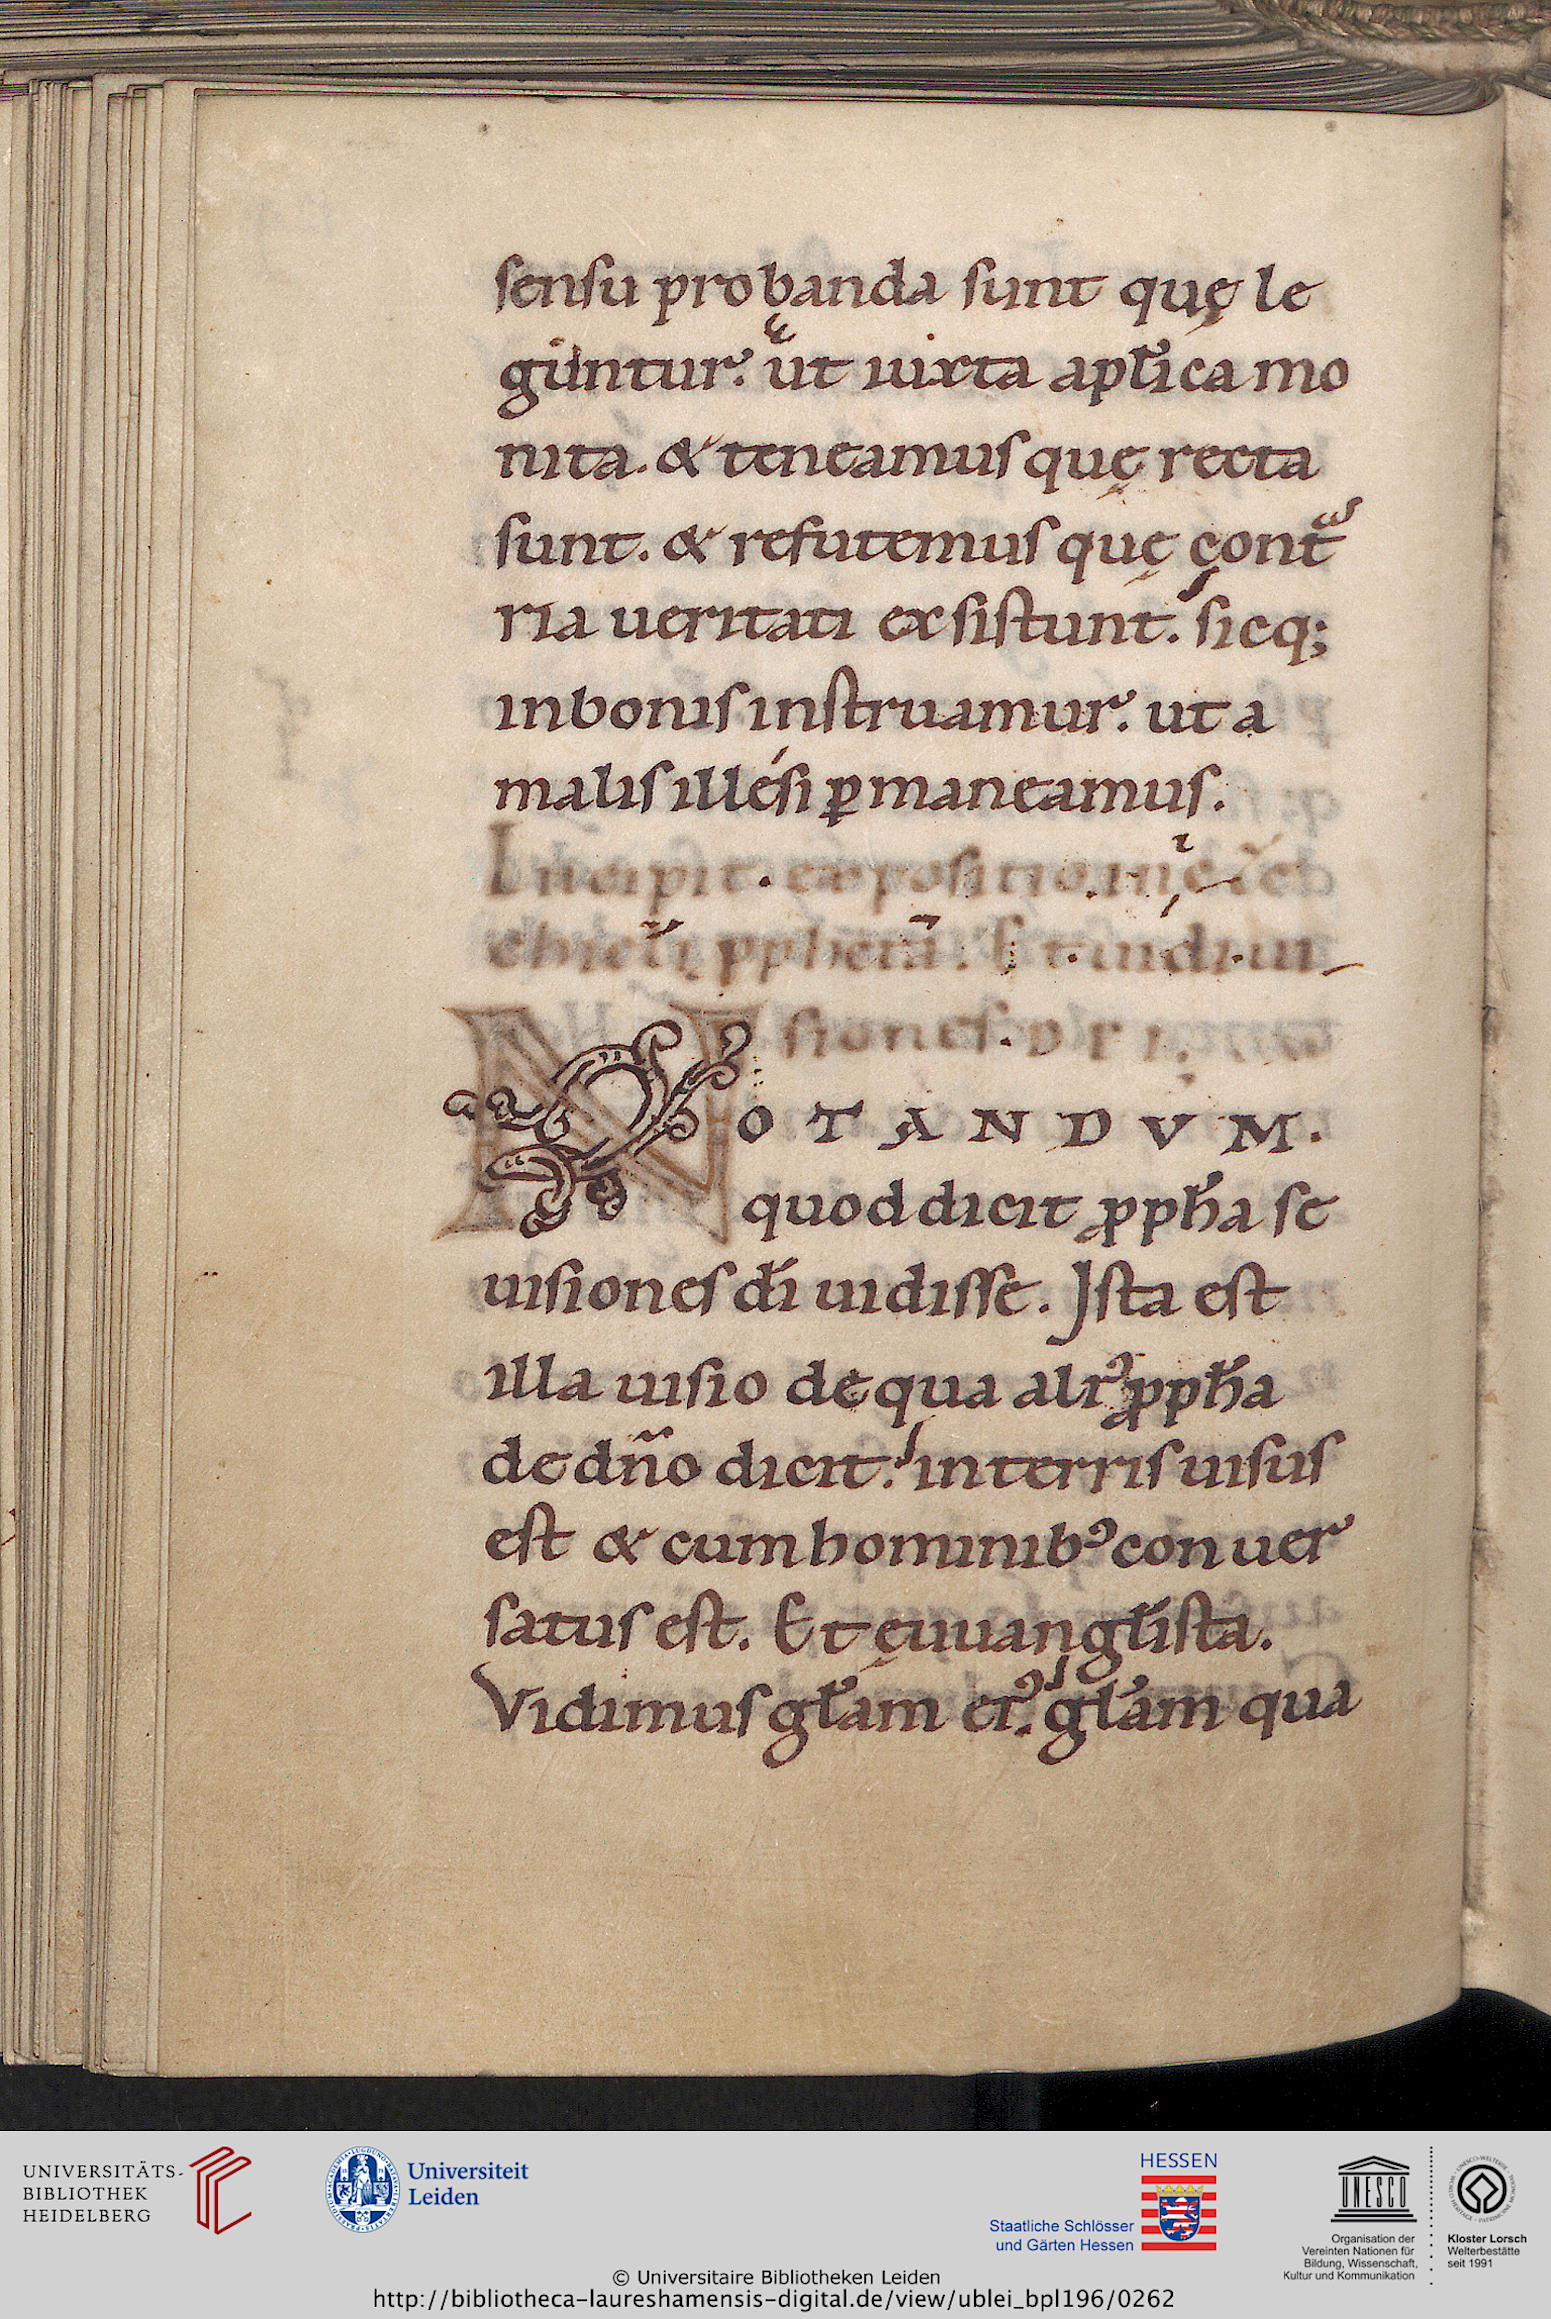 sensu probanda sunt quę le
guntur. ut iuixta apl̃ica mo
nita. & teneamus quę recta
sunt. & refutemus quę contͣ
ria ueritati exsistunt. sicq;
inbonis instruamur. ut a
malis illési ꝑmaneamus.
Incipit. expositio.
N siones. D̅I
OTANDVM.
quod dicit ꝓph̃a se
uisiones dĩ uidisse. Ista est
illa uisio de qua alt᷑ ꝓph̃a
de dño dicit. interris uisus
est & cum hominibꝰ conuer
satus est. Et ęuuangl̃ista.
Vidimus gl̃am eiꝰ. gl̃am qua
UNIVERSITÄTS-
BIBLIOTHEK
HEIDELBERG
Universiteit
Leiden
HESSEN
Staatliche Schlösser
und Gärten Hessen
UNESCO
Organisation der
Vereinten Nationen für
Bildung, Wissenschaft,
Kultur und Kommunikation
Kloster Lorsch
Welterbestätte
seit 1991
© Universitaire Bibliotheken Leiden
http://bibliotheca-laureshamensis-digital.de/view/ublei_bpl196/0262